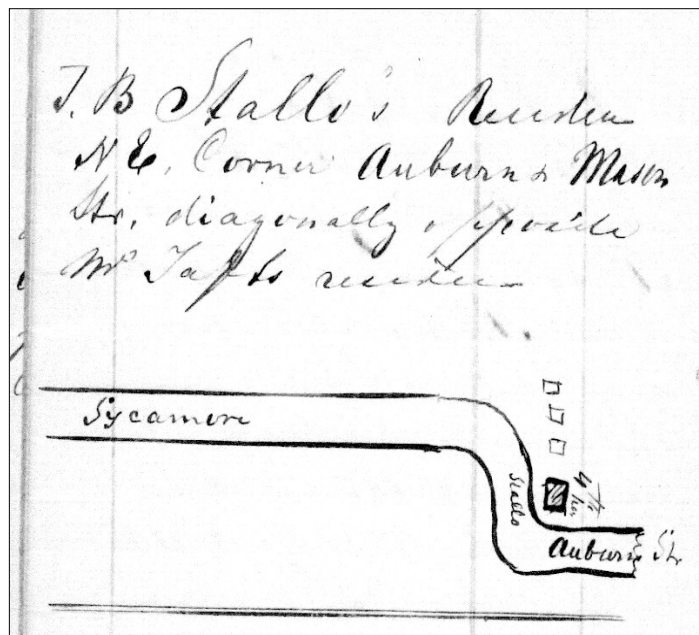 J. B Stallo's Residen
N E, Corner Auburn & Mason
Str, diagonally opposite
Mr Tafts residen
Sycamore
Stallo
4th hs
Auburn St.